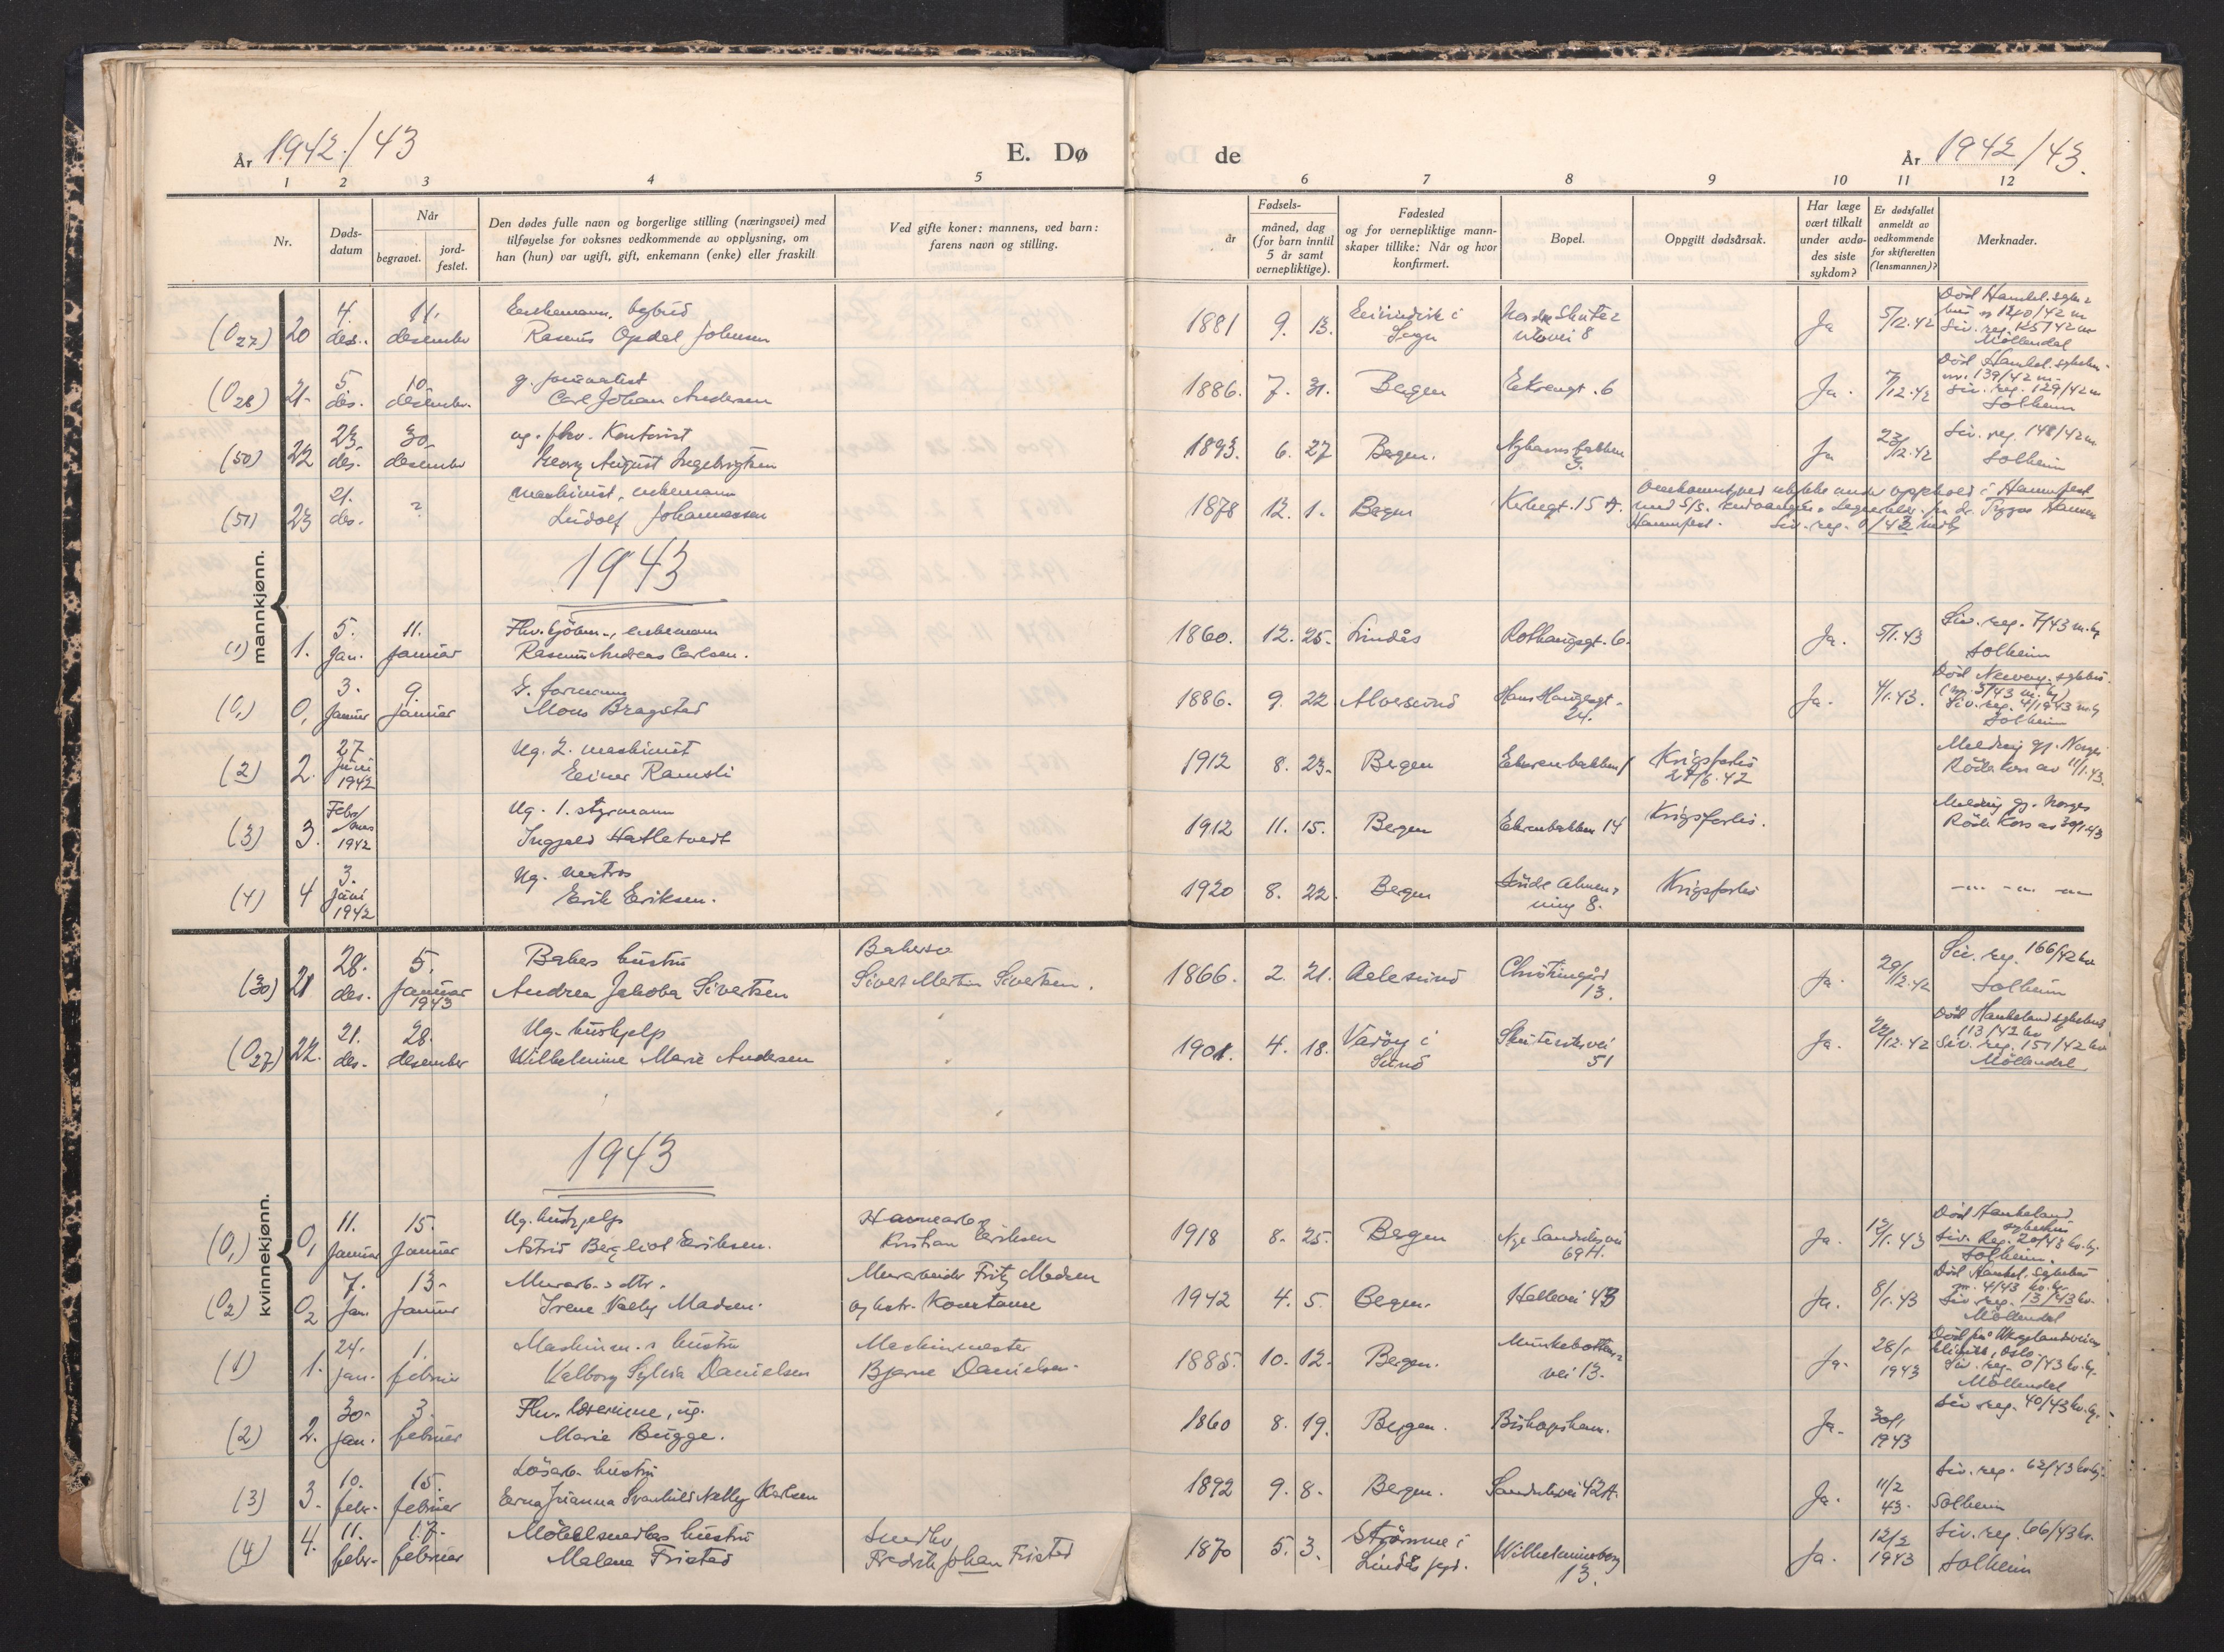 År 1942/43
E. Dø
de
År 1942/43.
1 2 3 4 5 6 7 8 9 10 11 12
Nr.
Døds-
datum
Når
begravet.
jord-
festet.
Den dødes fulle navn og borgerlige stilling (næringsvei) med
tilføyelse for voksnes vedkommende av opplysning, om
han (hun) var ugift, gift, enkemann (enke) eller fraskilt
Ved gifte koner: mannens, ved barn:
farens navn og stilling.
Fødsels-
år
måned, dag
(for barn inntil
5 år samt
vernepliktige).
Fødested
og for vernepliktige mann-
skaper tillike: Når og hvor
konfirmert.
Bopel.
Oppgitt dødsårsak.
Har læge
vært tilkalt
under avdø-
des siste
sykdom?
Er dødsfallet
anmeldt av
vedkommende
for skifteretten
(lensmannen)?
Merknader.
mannkjønn.
(O27) 20 4. des. 11. desember
Enkemann, bybud
Rasmus Opdal Johnsen
1881 9. 13. Sogn
8 Ja 5/12.42
Død Haukel. sykehus
Siv. reg. 125/42 m
Möllendal
(O28) 21. 5. des. 10. desember.
g. journalist
Carl Johan Andersen
1886. 7. 31. Bergen Ekrengt. 6 Ja. 7/12.42
Död Haukel. sykehus
nr. 139/42 m.
Siv. reg. 129/42 m
Solheim
(50) 22 23. des. 30. desember
ug. fhv. Kontorist
Georg August Ingebrigtsen
1893. 6. 27 Bergen. 3. Ja 23/12.42
Siv. reg. 148/42 m
Solheim
(51) 23 21. des. ?
maskinist, enkemann
Ludolf Johannessen
1878 12. 1. Bergen 15 A.
Omkommet ved ulykke under opphold i Hammerfest
Hammerfest. Siv. reg. 0/43 m.by
1943
(1) 1. 5. Jan. 11. januar
Fhv. sjöm., enkemann
Rasmus Andreas Carlsen.
1860. 12. 25. Lindås Rosthaugsgt. 6. Ja. 5/1.43
Siv. reg. 7/43 m.by
Solheim
(O1) O1 3. Januar 9. januar
G. formann
Mons Bragstad
1886. 9. 22 Alversund Hans Haugesgt. 24. Ja. 4/1.43.
Siv. reg. 4/1943 m.by
Solheim
(2) 2. 27. juni 1942
Ug. 2. maskinist
Einar Ramsli
1912 8. 23. Bergen Ekrenbakken 1 Krigsforlis 27/6.42
Melding gj. Norges
Röde Kors av 11/1.43.
(3) 3. Febr/mars 1942
Ug. 1. styrmann
Ingjald Hatletvedt
1912 11. 15. Bergen Ekrenbakken 14 Krigsforlis.
Melding gj. Norges
Röde Kors av 30/1.43
(4) 4 3. juni 1942
Ug. matros
Erik Eriksen.
1920 8. 22. Bergen Söndre Almen-
ning 8. Krigsforlis
-"- -"- -"-
kvinnekjønn.
(30) 21 28. des. 5. januar 1943
Bakers hustru
Andrea Jakoba Sivertsen
Sivert Martin Sivertsen.
1866. 2. 21. Aalesund 13. Ja. 29/12.42
Siv. reg. 166/42 kv
Solheim
(O27) 22. 21. des. 28. desember
Ug. hushjelp
Wilhelmine Marie Andersen
1901. 4. 18. Sund Skuteviksvei 51 Ja. 22/12.42
Död Haukeland sykehus
113/42 kv
Siv. reg. 151/42 kv
Möllendal
1943
(O1) O1 11. Januar 15. Januar
Ug. hushjelp
Astrid Bergliot Eriksen.
Havnearb.
Kristian Eriksen
1918 8. 25. Bergen Nye Sandviksvei 69 H. Ja. 12/1.43
Död Haukeland
sykehus
Siv. Reg. 20/43 kv.by.
Solheim.
(O2) O2 7. Jan. 13. Januar
Murarb.s dtr.
Irene Vesly Madsen.
Murarbeider Fritz Madsen
og hstr. Konstanse
1942 4. 5. Bergen. Hellevei 43 Ja. 8/1.43
Död Haukel. sykehus
nr. 4/43 kv.by.
Siv. reg. 13/43 kv.
Möllendal
(1) 1. 24. jan. 1. februar
Maskinm.s hustru
Valborg Sylvia Danielsen
Maskinmester
Bjarne Danielsen.
1885. 10. 12. Bergen. Munkebotten-
vei 13. Ja. 28/1 1943
klinikk, Oslo.
Siv. reg. 0/43 kv.by.
Möllendal
(2) 2. 30. jan. 3. februar
Fhv. lærerinne, ug.
Marie Bugge.
1860 8. 19. Bergen. Bishopshavn. Ja. 30/1 1943
Siv reg. 40/43 kv.by.
(3) 3. 10. febr. 15. februar
Lösarb. hustru
Erna Johanna Svanhild Nelly Karlsen
1892 9. 8. Bergen. Sandviksvei 42 A. Ja. 11/2 43.
Siv. reg. 62/43 kv.by.
Solheim
(4) 4. 11. febr. 17. februar
Möbelsnedkers hustru
Malene Fristad
Snedker
Fredrik Johan Fristad
1870 5. 3. Strømme i
Lindås pgd. Wilhelmineborg 13. Ja. 12/2 1943
Siv. reg. 66/43 kv.
Solheim